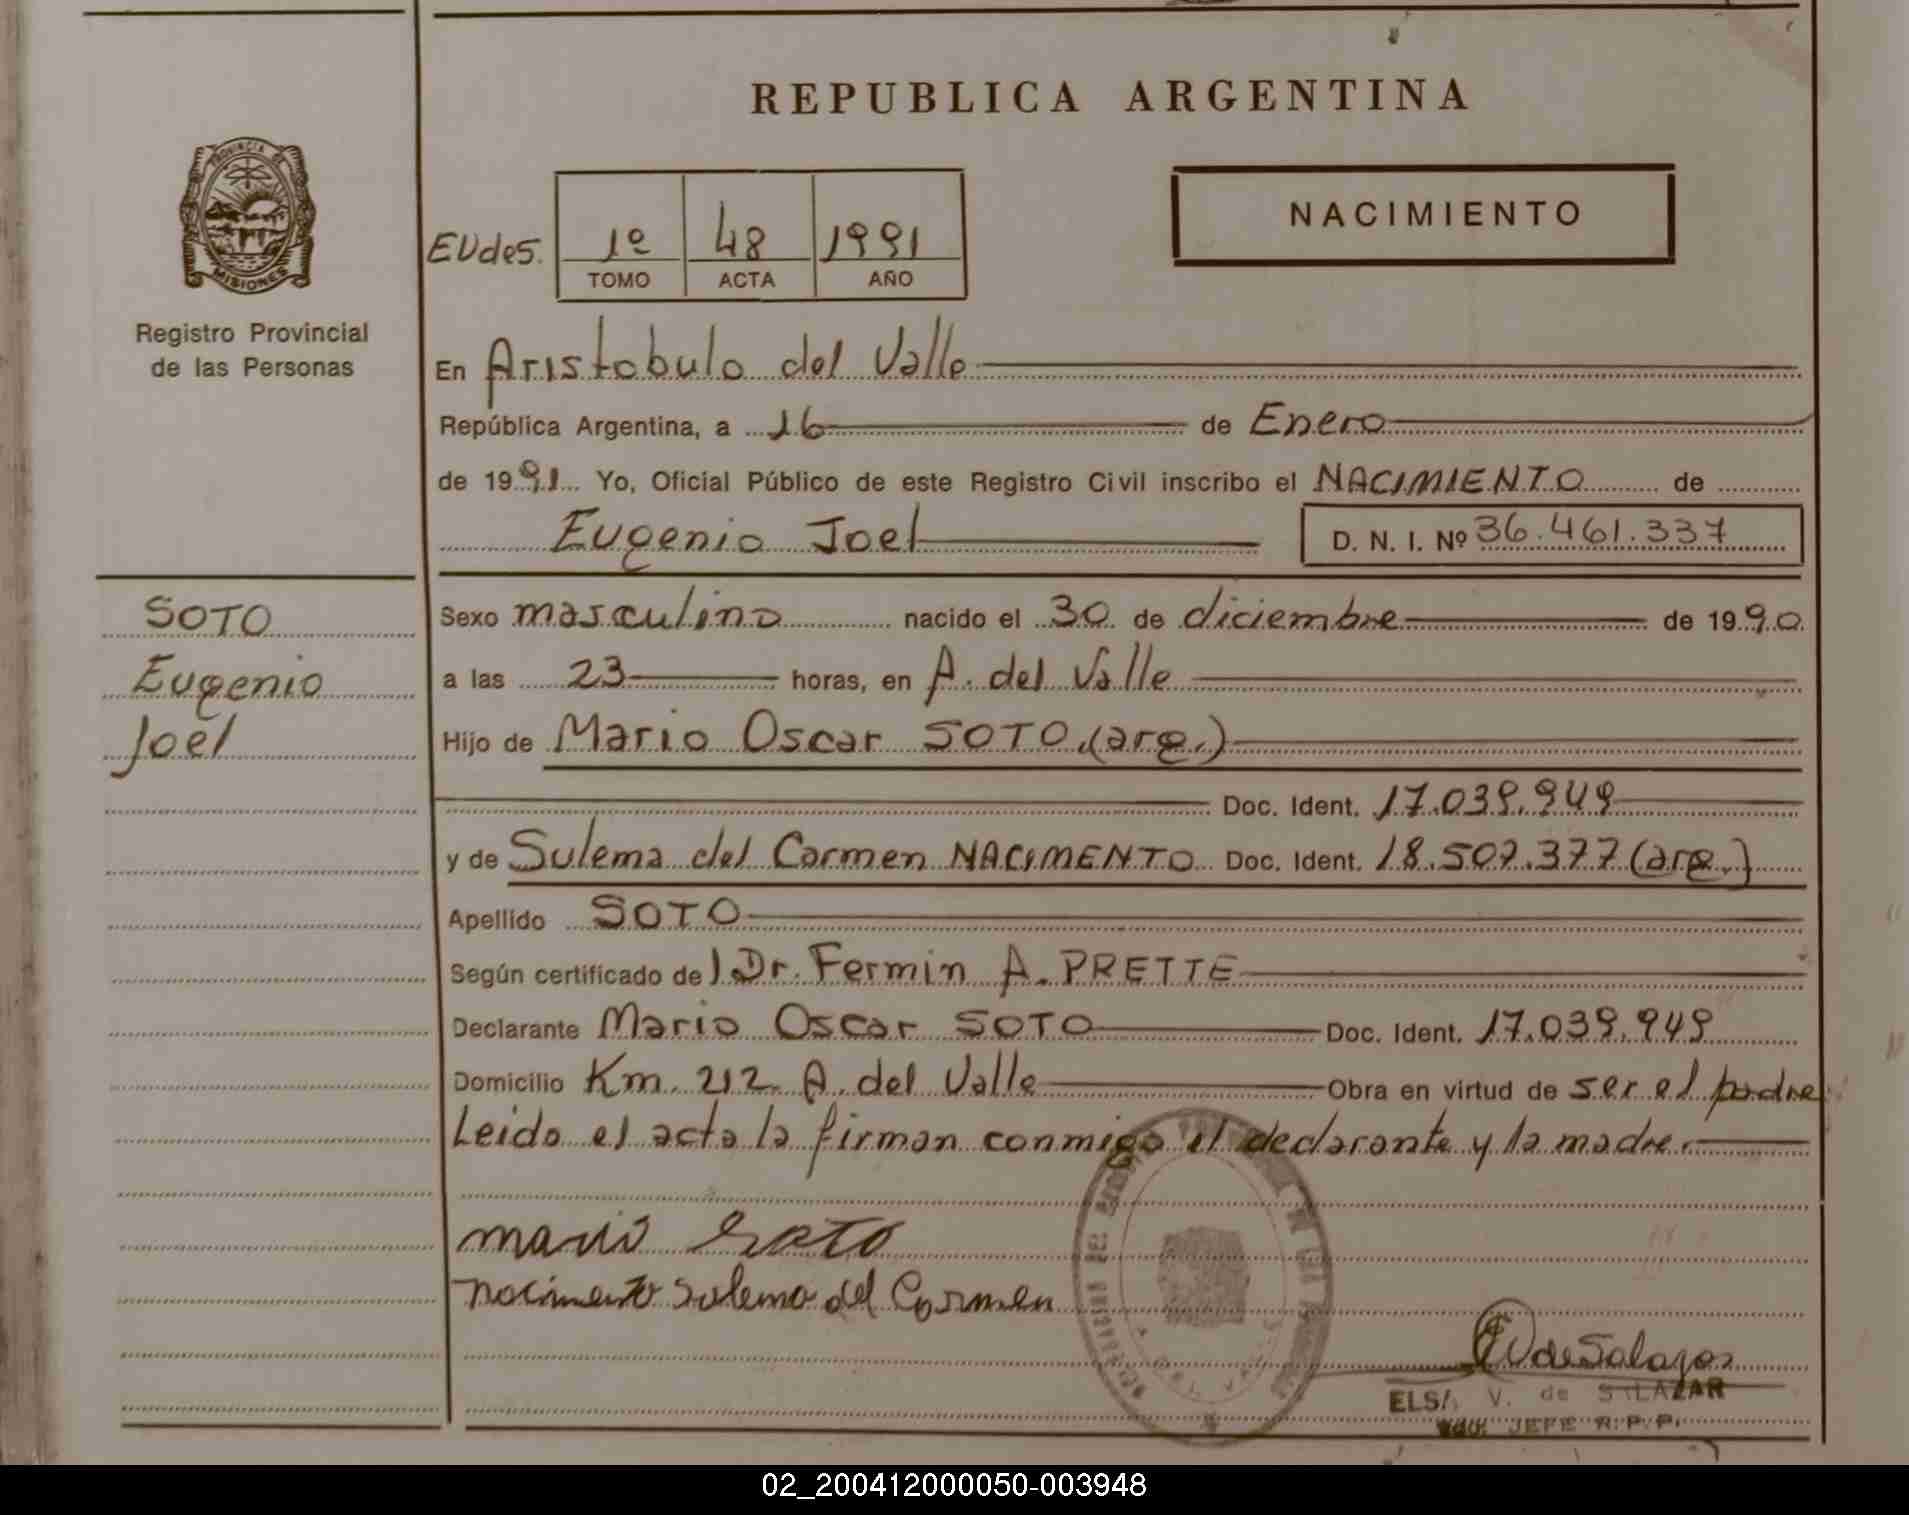 REPUBLICA ARGENTINA
PROVINCIA DE
MISIONES
Registro Provincial
de las Personas
NACIMIENTO
EVdeS. 1º 48 1991
TOMO ACTA AÑO
En Aristobulo del Valle
República Argentina, a 16 de Enero
de 1991 Yo, Oficial Público de este Registro Civil inscribo el NACIMIENTO de
Eugenio Joel D. N. I. Nº 36.461.337
SOTO
Eugenio
Joel
Sexo masculino nacido el 30 de diciembre de 1990
a las 23 horas, en A. del Valle
Hijo de Mario Oscar SOTO (arg.)
Doc. Ident. 17.039.949
y de Sulema del Carmen NACIMENTO Doc. Ident. 18.507.377 (arg.)
Apellido SOTO
Según certificado de l Dr. Fermin A. PRETTE
Declarante Mario Oscar SOTO Doc. Ident. 17.039.949
Domicilio Km. 212 A. del Valle Obra en virtud de ser el padre
Leido el acta la firman conmigo el declarante y la madre.
Mario Soto
Nacimento Sulema del Carmen
EVdeSalazar
ELSA V. de SALAZAR
JEFE R.P.P.
02_200412000050-003948